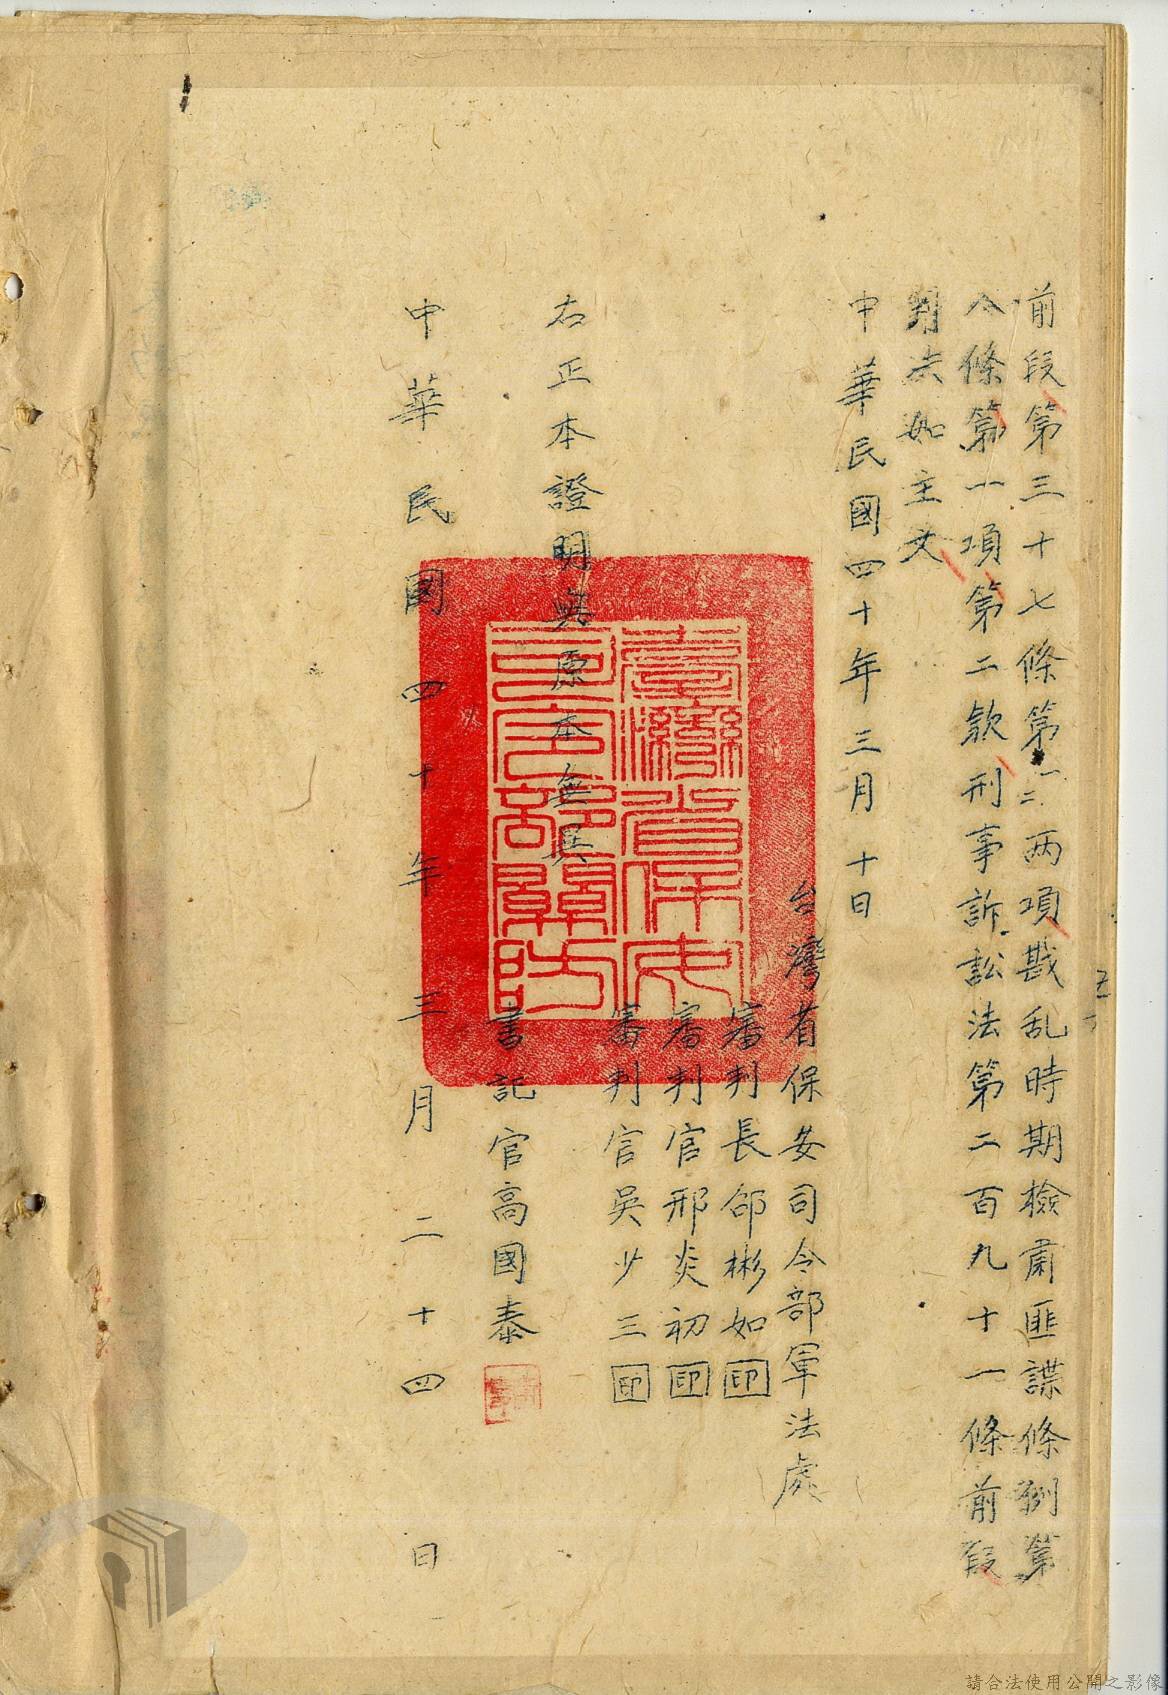 前段第三十七條第一二兩項戡乱時期檢肅匪諜條例第
八條第一項第二款刑事訴訟法第二百九十一條前段
判决如主文
中華民國四十年三月十日
台灣省保安司令部軍法處
審判長邰彬如印
審判官邢炎初印
審判官吳少三印
右正本證明與原本無異
書記官高國泰
中華民國四十年三月二十四日
臺灣省保安
司令部關防
五
請合法使用公開之影像